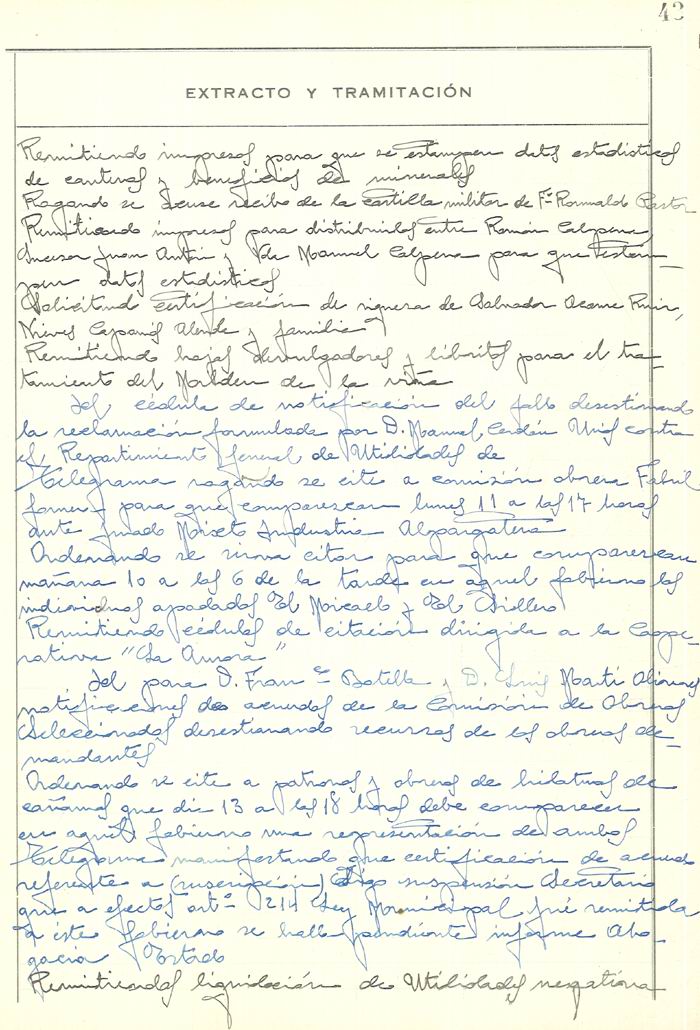 42
EXTRACTO Y TRAMITACIÓN
Remitiendo impresos para que se estampen datos estadisticos
de canteras y beneficios de minerales
Rogando se acuse recibo de la cartilla militar de Fº Romualdo Pastor
Remitiendo impresos para distribuirlos entre Román Calpena,
Sucesor Juan Antón y Vda Manuel Calpena para que estam-
pen datos estadísticos
Solicitando certificación de riqueza de Salvador Azame Ruiz,
Nieves Alende y familia
Remitiendo hojas divulgadoras y libritos para el tra-
tamiento del Mildeu de la viña
Id cédula de notificación del fallo desestimando
la reclamación formulada por D. Manuel Cerdán contra
el Repartimiento General de Utilidades de
Telegrama rogando se cite a comisión obrera Fabril
para que comparezcan lunes 11 a las 17 horas
ante Jurado Mixto Industria Alpargatera
Ordenando se sirva citar para que comparezcan
mañana 10 a las 6 de la tarde en aquel Gobierno los
individuos apodados El Micaelo y El
Remitiendo cédulas de citación dirigida a la Coope-
rativa "La Aurora"
Id para D. Franco Botella y D. Luis Martí
notificaciones de acuerdos de la Comisión de Obreros
Seleccionados desestimando recursos de los obreros de-
mandantes
Ordenando se cite a patronos y obreros de hilaturas de
cañamos que dia 13 a las 18 horas debe comparecer
en aquel Gobierno una representación de ambos
Telegrama manifestando que certificación de acuerdo
referente a (suscripción) digo suspensión Secretario
que a efectos artº 214 Ley Municipal fué remitida
a este Gobierno se halla pendiente informe Abo-
gacia Estado
Remitiendo liquidación de Utilidades negativa